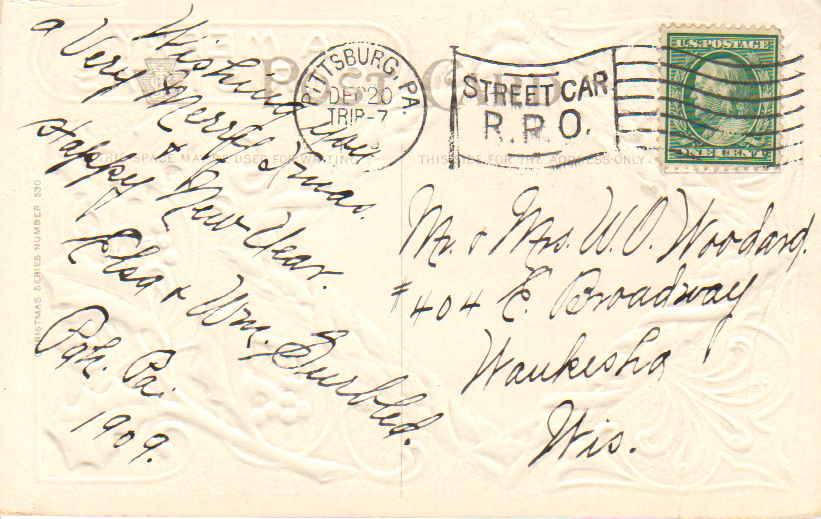 POST CARD
THIS SPACE MAY BE USED FOR WRITING
THIS SIDE FOR THE ADDRESS ONLY.
CHRISTMAS SERIES NUMBER 530
Wishing you
a Very Merry Xmas.
&
Happy New Year.
Elsa & Wm.
Pgh. Pa.
1909.
PITTSBURG, PA.
DEC 20
TRIP-7
STREET CAR
R.P.O.
U.S. POSTAGE
ONE CENT
Mr. & Mrs. W. O. Woodard.
#404 E. Broadway
Waukesha
Wis.